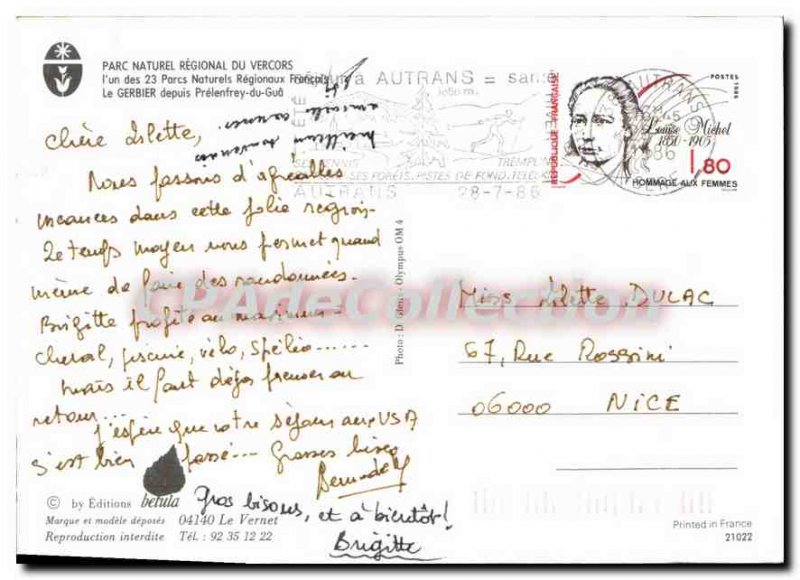 PARC NATUREL RÉGIONAL DU VERCORS
l'un des 23 Parcs Naturels Régionaux Français
Le GERBIER depuis Prélenfrey-du-Guâ
AUTRANS = santé
1050 m.
TREMPLIN
SES FORÊTS, PISTES DE FOND,
AUTRANS 28-7-86
AUTRANS
1986
ISERE
RÉPUBLIQUE FRANÇAISE
POSTES 1986
Louise Michel
1830-1905
1,80
HOMMAGE AUX FEMMES
meilleurs souvenirs
amicale
Chère Arlette,
Nous passons d'agréables
vacances dans cette jolie région.
Le temps moyen nous permet quand
même de faire des randonnées.
Brigitte profite au maximum -
cheval, piscine, vélo, Spéléo......
Mais il faut déjà penser au
retour...
J'espère que votre séjour aux USA
s'est bien passé... Grosses bises
Gros bisous, et à bientôt!
Brigitte
Miss Arlette DULAC
67, Rue Rossini
06000 NICE
Photo : D. - Olympus OM 4
CPArteCollection
© by Éditions betula
Marque et modèle déposés 04140 Le Vernet
Reproduction interdite Tél : 92 35 12 22
Printed in France
21022